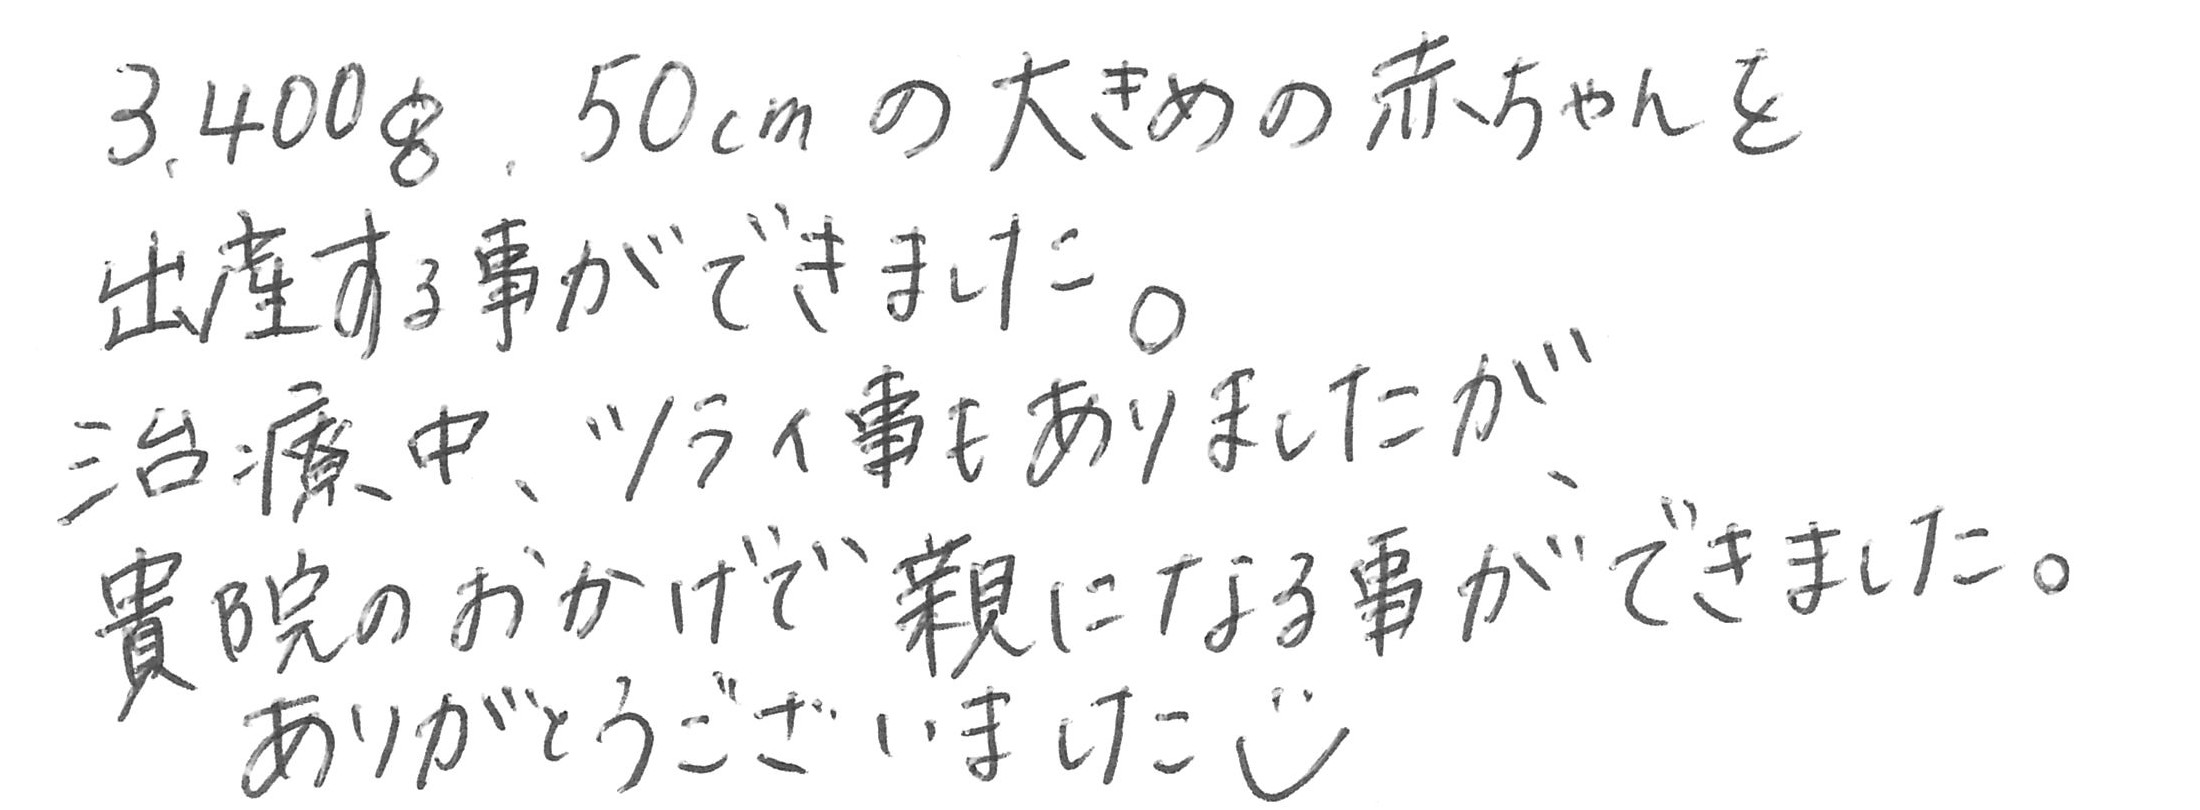 3,400g, 50cmの大きめの赤ちゃんを
出産する事ができました。
治療中、ツライ事もありましたが、
貴院のおかげで親になる事ができました。
ありがとうございました